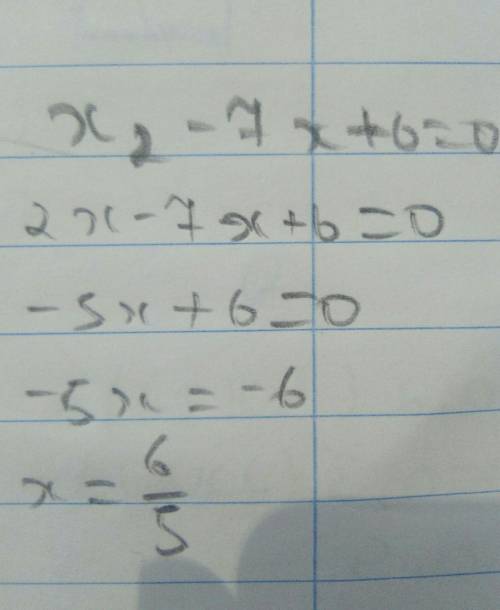 x₂ - 7x + 6 = 0
2x - 7x + 6 = 0
-5x + 6 = 0
-5x = -6
x = 6/5